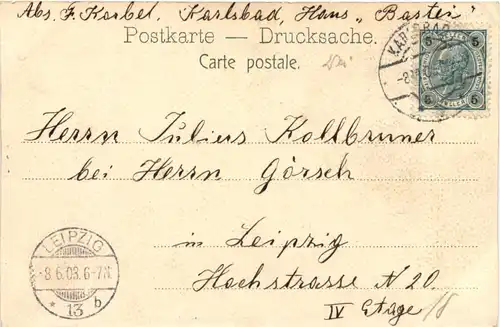 Abs. F. Korbel, Karlsbad, Haus „Bastei"
Postkarte — Drucksache.
Carte postale.
KARLSBAD
6 6
6 6
Herrn Julius Kollbrunner
bei Herrn Görsch
in Leipzig
Hochstrasse N 20
IV Etage
LEIPZIG
-8.6.03. 6-7N.
* 13 b